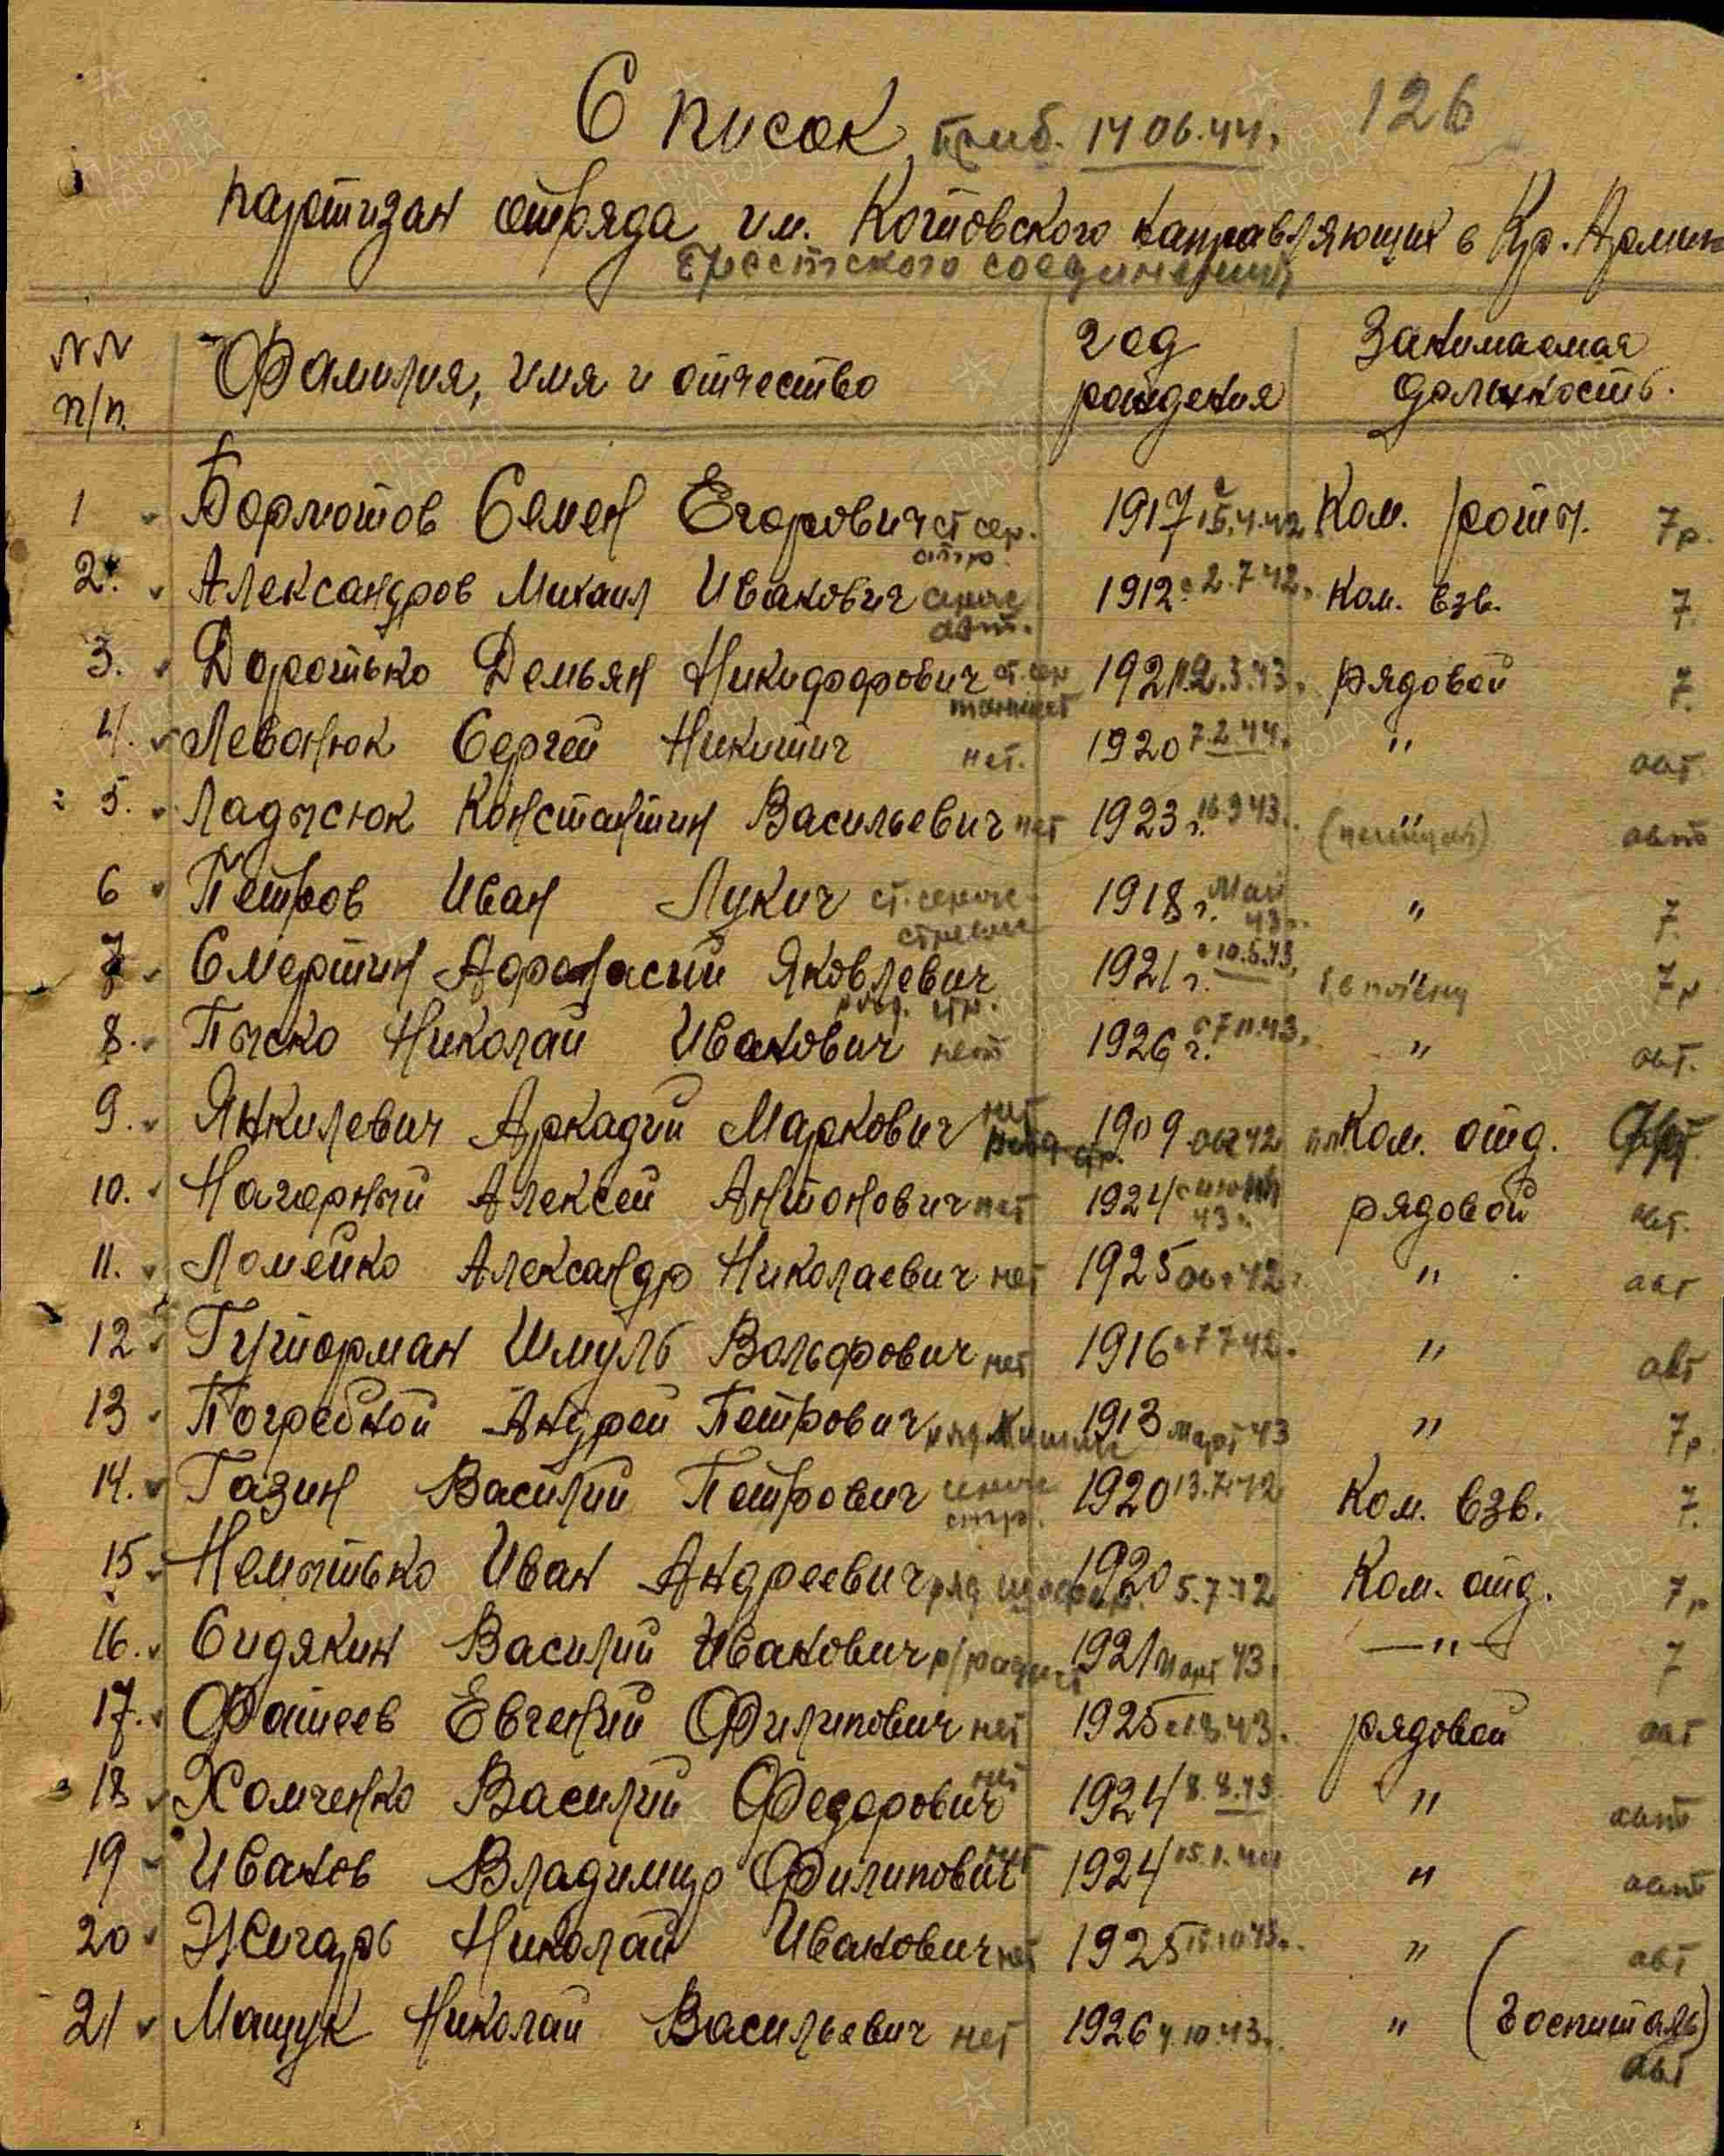 Список приб. 14 06.44г. 126
партизан отряда им. Котовского направляющих в Кр. Армию
Брестского соединения
NN п/п. Фамилия, имя и отчество год рождения Занимаемая должность.
1 Бормотов Семен Егорович ст сер. 1917 с 15.4.42 Ком. роты. 7р.
2. Александров Михаил Иванович 1912 с 2.7.42г. Ком. взв. 7.
3. Доротько Демьян Никифорович ст. сер 1921 12.3.43г. рядовой 7.
4. Леванюк Сергей Никитич нет. 1920 7.2.44г. " авт
5. Ладысюк Константин Васильевич нет 1923 г. 16.9 43г. " авт
6 Петров Иван Лукич ст. серж. 1918 г. Май 43г. " 7.
7 Смертин Афанасий Яковлевич 1921 г. с 10.5.43г. " 7р
8. Пыско Николай Иванович нет 1926 г. с 7.11.43г. " авт.
9. Янкилевич Аркадий Маркович нет 1909 окт 42 Ком. отд.
10. Нагорный Алексей Антонович нет 1924 43г. рядовой авт.
11. Ломейко Александр Николаевич нет 1925 окт 42г. " авт
12 Гутторман Шмуль Вольфович нет 1916 с 7 7 42г. " авт
13 Погребной Андрей Петрович ряд. 1913 Март 43 " 7р
14. Газин Василий Петрович серж стр. 1920 13.7.42 Ком. взв. 7.
15 Немытько Иван Андреевич ряд шофер. 1920 5.7.42 Ком. отд. 7р
16. Сидякин Василий Иванович р/радист 1921 Март 43г. — " — 7
17. Фатеев Евгений Филипович нет 1925 43г. рядовой авт
18 Хомченко Василий Федорович нет 1924 8.8.43 " авт
19 Иванов Владимир Филипович нет 1924 15.1.44 " авт
20 Жигарь Николай Иванович нет 1925 15.10 43г. " авт
21 Мащук Николай Васильевич нет 1926 4.10.43г. " (Госпиталь)
авт
ПАМЯТЬ НАРОДА